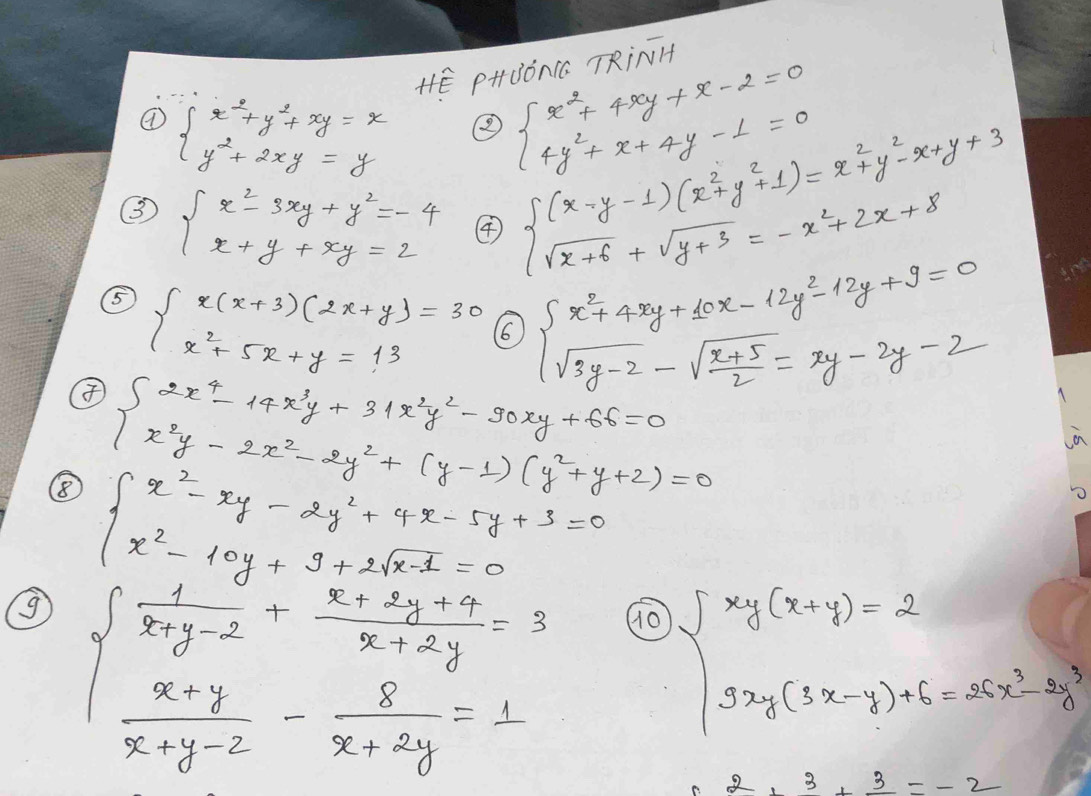 HỆ PHƯƠNG TRÌNH
① { x² + y² + xy = x
y² + 2xy = y
② { x² + 4xy + x - 2 = 0
4y² + x + 4y - 1 = 0
③ { x² - 3xy + y² = -4
x + y + xy = 2
④ { (x - y - 1)(x² + y² + 1) = x² + y² - x + y + 3
√(x+6) + √(y+3) = -x² + 2x + 8
⑤ { x(x+3)(2x+y) = 30
x² + 5x + y = 13
⑥ { x² + 4xy + 10x - 12y² - 12y + 9 = 0
√(3y-2) - √((x+5)/2) = xy - 2y - 2
⑦ { 2x⁴ - 14x³y + 31x²y² - 90xy + 66 = 0
x²y - 2x² - 2y² + (y-1)(y² + y + 2) = 0
⑧ { x² - xy - 2y² + 4x - 5y + 3 = 0
x² - 10y + 9 + 2√(x-1) = 0
⑨ { 1/(x+y-2) + (x+2y+4)/(x+2y) = 3
(x+y)/(x+y-2) - 8/(x+2y) = 1
⑩ { xy(x+y) = 2
9xy(3x-y) + 6 = 26x³ - 2y³
2 + 3 + 3 = -2